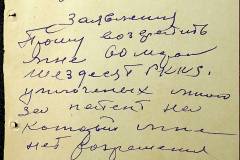 Заявления
Прошу возвратить
мне
шездесят
уплоченых много
за патент на
который мне
нет разрешения